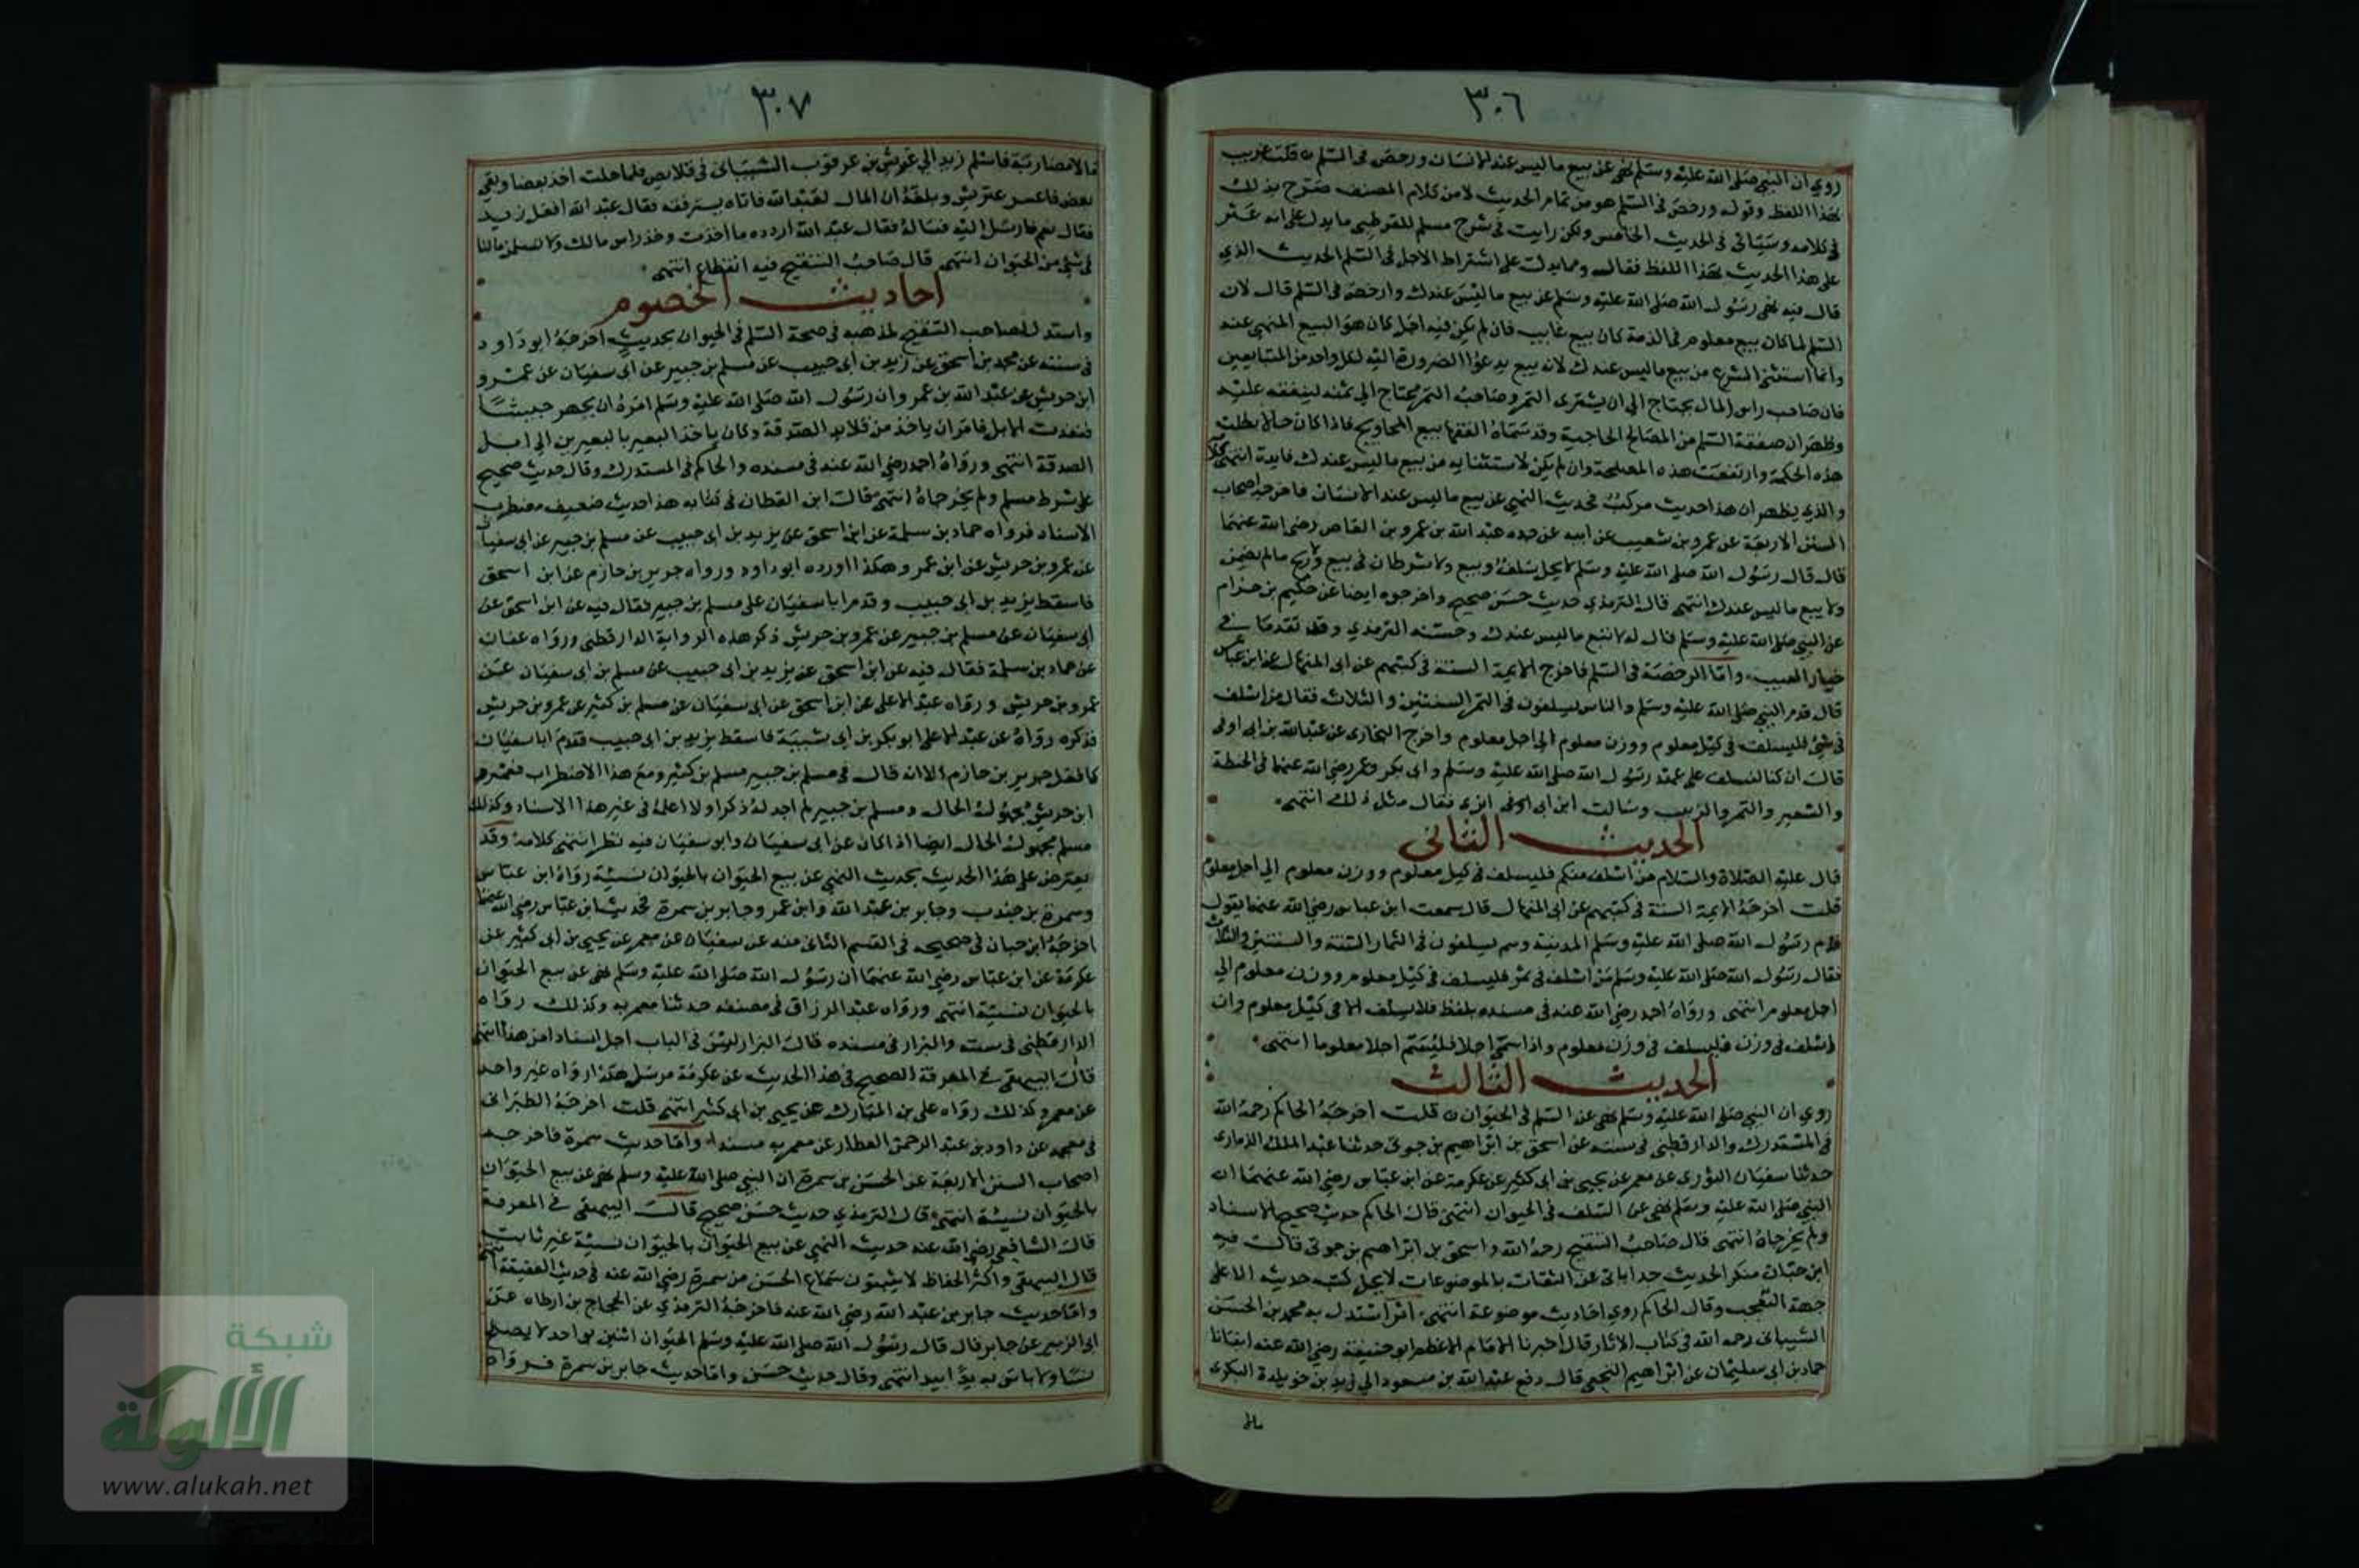 ٣٠٦
روي ان النبي صلى الله عليه وسلم نهى عن بيع ما ليس عند الانسان ورخص في السلم قلت غريب
بهذا اللفظ وقوله ورخص في السلم هو من تمام الحديث لا من كلام المصنف صرح بذلك
في كلامه وسياتي في الحديث الخامس ولكن رايت في شرح مسلم للقرطبي ما يدل على انه عثر
على هذا الحديث بهذا اللفظ فقال ومما يدل على اشتراط الاجل في السلم الحديث الذي
قال فيه نهى رسول الله صلى الله عليه وسلم عن بيع ما ليس عندك وارخص في السلم قال لان
السلم لما كان بيع معلوم في الذمة كان بيع غايب فان لم يكن فيه اجل كان هو البيع المنهي عنه
وانما استثنى الشرع من بيع ما ليس عندك لانه بيع يدعوا الضرورة اليه لكل واحد من المتبايعين
فان صاحب راس المال يحتاج الى ان يشترى التمر وصاحب التمر يحتاج الى ثمنه لينفقه عليه
وظهر ان صفقة السلم من المصالح الحاجية وقد سماه الفقها بيع المحاويج فاذا كان حالا بطلت
هذه الحكمة وارتفعت هذه المصلحة وان لم يكن لاستثنايه من بيع ما ليس عندك فايدة انتهى
والذي يظهر ان هذا حديث مركب فحديث النهي عن بيع ما ليس عند الانسان فاخرجه اصحاب
السنن الاربعة عن عمرو بن شعيب عن ابيه عن جده عبد الله بن عمرو بن العاص رضي الله عنهما
قال قال رسول الله صلى الله عليه وسلم لا يحل سلف وبيع ولا شرطان في بيع ولا ربح ما لم يضمن
ولا بيع ما ليس عندك انتهى قال الترمذي حديث حسن صحيح واخرجوه ايضا عن حكيم بن حزام
عن النبي صلى الله عليه وسلم قال له لا تبع ما ليس عندك وحسنه الترمذي وقد تقدما في
خيار العيب واما الرخصة في السلم فاخرج الايمة الستة في كتبهم عن ابي المنهال عن ابن عباس
قال قدم النبي صلى الله عليه وسلم والناس يسلفون في التمر السنتين والثلاث فقال من اسلف
في شي فليسلف في كيل معلوم ووزن معلوم الى اجل معلوم واخرج البخاري عن عبد الله بن ابي اوفى
قال ان كنا لنسلف على عهد رسول الله صلى الله عليه وسلم وابي بكر وعمر رضي الله عنهما في الحنطة
والشعير والتمر والزبيب وسالت ابن ابزى فقال مثل ذلك انتهى
الحديث الثاني
قال عليه الصلاة والسلام من اسلف منكم فليسلف في كيل معلوم ووزن معلوم الى اجل معلوم
قلت اخرجه الايمة الستة في كتبهم عن ابي المنهال قال سمعت ابن عباس رضي الله عنهما يقول
قدم رسول الله صلى الله عليه وسلم المدينة وهم يسلفون في الثمار السنة والسنتين والثلاث
فقال رسول الله صلى الله عليه وسلم من اسلف في تمر فليسلف في كيل معلوم ووزن معلوم الى
اجل معلوم انتهى ورواه احمد رضي الله عنه في مسنده بلفظ فلا يسلف الا في كيل معلوم وان
اسلف في وزن فليسلف في وزن معلوم واذا سمى اجلا فليسم اجلا معلوما انتهى
الحديث الثالث
روي ان النبي صلى الله عليه وسلم نهى عن السلم في الحيوان قلت اخرجه الحاكم رحمه الله
في المستدرك والدارقطني في سننه عن اسحق بن ابراهيم بن جوتى حدثنا عبد الملك الذماري
حدثنا سفيان الثوري عن معمر عن يحيى بن ابي كثير عن عكرمة عن ابن عباس رضي الله عنهما ان
النبي صلى الله عليه وسلم نهى عن السلف في الحيوان انتهى قال الحاكم حديث صحيح الاسناد
ولم يخرجاه انتهى قال صاحب التنقيح رحمه الله واسحق بن ابراهيم بن جوتى قال فيه
ابن حبان منكر الحديث جدا ياتي عن الثقات بالموضوعات لا يحل كتب حديثه الا على
جهة التعجب وقال الحاكم روي احاديث موضوعة انتهى اثر استدل به محمد بن الحسن
الشيباني رحمه الله في كتاب الاثار قال اخبرنا الامام الاعظم ابو حنيفة رضي الله عنه انبانا
حماد بن ابي سليمان عن ابراهيم النخعي قال دفع عبد الله بن مسعود الى زيد بن خويلدة البكري
٣٠٧
مالا مضاربة فاسلم زيد الى عتريس بن عرقوب الشيباني في قلايص فلما حلت اخذ بعضا وبقي
بعض فاعسر عتريس وبلغه ان المال لعبد الله فاتاه يسترفقه فقال عبد الله افعل زيد
فقال نعم فارسل اليه فساله فقال عبد الله اردد ما اخذت وخذ راس مالك ولا تسلمن مالنا
في شي من الحيوان انتهى قال صاحب التنقيح فيه انقطاع انتهى
احاديث الخصوم
واستدل لصاحب التنقيح لمذهبه في صحة السلم في الحيوان بحديث اخرجه ابو داود
في سننه عن محمد بن اسحق عن زيد بن ابي حبيب عن مسلم بن جبير عن ابي سفيان عن عمرو
ابن حريش عن عبد الله بن عمرو ان رسول الله صلى الله عليه وسلم امره ان يجهز جيشا
فنفدت الابل فامر ان ياخذ من قلايد الصدقة وكان ياخذ البعير بالبعيرين الى ابل
الصدقة انتهى ورواه احمد رضي الله عنه في مسنده والحاكم في المستدرك وقال حديث صحيح
على شرط مسلم ولم يخرجاه انتهى قال ابن القطان في كتابه هذا حديث ضعيف مضطرب
الاسناد فرواه حماد بن سلمة عن ابن اسحق عن يزيد بن ابي حبيب عن مسلم بن جبير عن ابي سفيان
عن عمرو بن حريش عن ابن عمر وهكذا اورده ابو داود ورواه جرير بن حازم عن ابن اسحق
فاسقط يزيد بن ابي حبيب وقدم ابا سفيان على مسلم بن جبير فقال فيه عن ابن اسحق عن
ابي سفيان عن مسلم بن جبير عن عمرو بن حريش ذكر هذه الرواية الدارقطني ورواه عفان
عن حماد بن سلمة فقال فيه عن ابن اسحق عن يزيد بن ابي حبيب عن مسلم بن ابي سفيان عن
عمرو بن حريش ورواه عبد الاعلى عن ابن اسحق عن ابي سفيان عن مسلم بن كثير عن عمرو بن حريش
فذكره رواه عن عبد الاعلى ابو بكر بن ابي شيبة فاسقط يزيد بن ابي حبيب فقدم ابا سفيان
كما فعل جرير بن حازم الا انه قال في مسلم بن جبير مسلم بن كثير ومع هذا الاضطراب فعمرو
ابن حريش مجهول الحال ومسلم بن جبير لم اجد له ذكرا ولا اعلمه في غير هذا الاسناد وكذلك
مسلم مجهول الحال ايضا اذا كان عن ابي سفيان وابو سفيان فيه نظر انتهى كلامه وقد
يعترض على هذا الحديث بحديث النهي عن بيع الحيوان بالحيوان نسية رواه ابن عباس
وسمرة بن جندب وجابر بن عبد الله وابن عمر وجابر بن سمرة فحديث ابن عباس رضي الله عنهما
اخرجه ابن حبان في صحيحه في القسم الثاني منه عن سفيان عن معمر عن يحيى بن ابي كثير عن
عكرمة عن ابن عباس رضي الله عنهما ان رسول الله صلى الله عليه وسلم نهى عن بيع الحيوان
بالحيوان نسية انتهى ورواه عبد الرزاق في مصنفه حدثنا معمر به وكذلك رواه
الدارقطني في سننه والبزار في مسنده قال البزار ليس في الباب اجل اسنادا من هذا انتهى
قال البيهقي في المعرفة الصحيح في هذا الحديث عن عكرمة مرسل هكذا رواه غير واحد
عن معمر وكذلك رواه علي بن المبارك عن يحيى بن ابي كثير انتهى قلت اخرجه الطبراني
في معجمه عن داود بن عبد الرحمن العطار عن معمر به مسندا واما حديث سمرة فاخرجه
اصحاب السنن الاربعة عن الحسن بن سمرة ان النبي صلى الله عليه وسلم نهى عن بيع الحيوان
بالحيوان نسيئة انتهى قال الترمذي حديث حسن صحيح قال البيهقي في المعرفة
قال الشافعي رضي الله عنه حديث النهي عن بيع الحيوان بالحيوان نسية غير ثابت
قال البيهقي واكثر الحفاظ لا يثبتون سماع الحسن من سمرة رضي الله عنه في حديث العقيقة انتهى
واما حديث جابر بن عبد الله رضي الله عنه فاخرجه الترمذي عن الحجاج بن ارطاه عن
ابي الزبير عن جابر قال قال رسول الله صلى الله عليه وسلم الحيوان اثنين بواحد لا يصلح
نسا ولا باس به يدا بيد انتهى وقال حديث حسن واما حديث جابر بن سمرة فرواه
شبكة
الألوكة
www.alukah.net